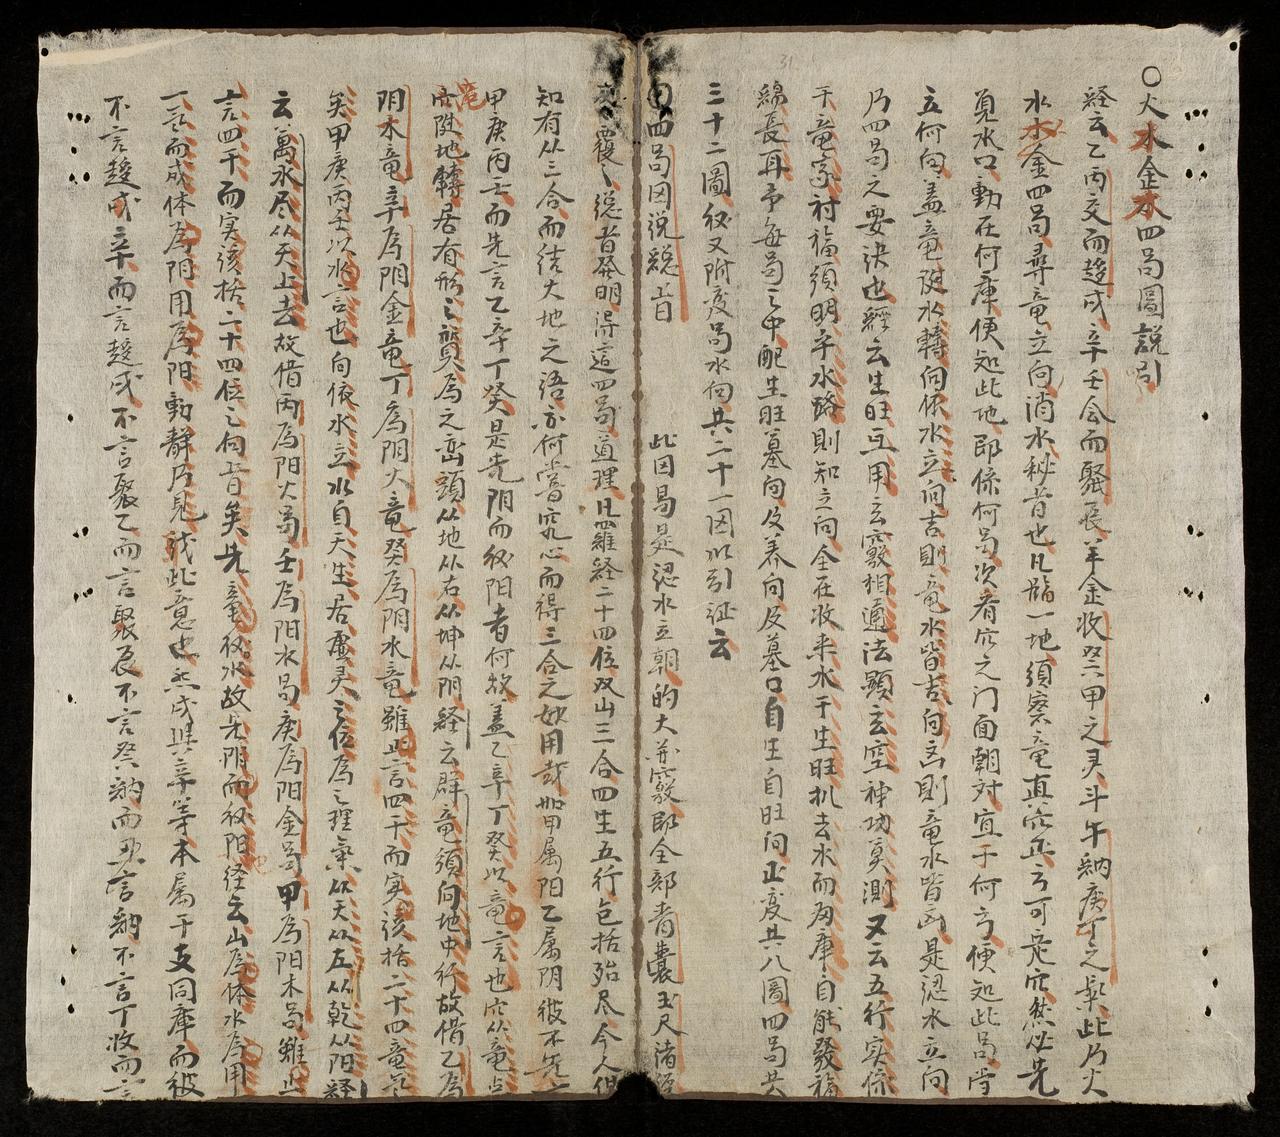 ○火水金木四局圖説引
経云乙丙交而趍戍辛壬会而聚辰斗牛納庚丁之氣金羊收癸甲之灵此乃火
水木金四局尋竜立向消水秘旨也凡臨一地須察竜直穴正方可定穴然必先
覓水口動在何庫便知此地即係何局次看穴之门面朝对宜于何方便知此局当
立何向盖竜随水轉向依水立向吉則竜水皆吉向凶則竜水皆凶是認水立向
乃四局之要決也経云生旺互用玄竅相通法顕玄空神功莫測又云五行实係
于竜家討福須明乎水路則知立向全在收来水于生旺扒去水而為庫自能發福
綿長耳予每局之中配生旺墓向及养向及墓口自生自旺向正变共八圖四局共
三十二圖後又附变局水向共二十一图以引证云
甲四局图説総旨　此因易是認水立朝的大並竅即全部青囊玉尺諸經
覆々総旨發明得這四局道理凡羅経二十四位双山三合四生五行包括殆尽今人但
知有从三合而結大地之语亦何嘗究心而得三合之妙用哉如甲属阳乙属阴彼不先言
甲庚丙壬而先言乙辛丁癸是先阴而後阳者何故盖乙辛丁癸以竜言也穴从竜点
竜随地轉居有形之質為之峦頭从地从右从坤从阴経云群竜須向地中行故借乙為
阴木竜辛為阴金竜丁為阴火竜癸為阴水竜雖止言四干而实該括二十四竜之
矣甲庚丙壬以水言也向依水立水自天生居虚灵之位為之理氣从天从左从乾从阳経
云萬水尽从天上去故借丙為阳火局壬為阳水局庚為阳金局甲為阳木局雖止
言四干而实該括二十四位之向旨矣先竜後水故先阴而後阳経云山為体水為用
一言而成体為阴用為阳動靜乃見或此意也然戍與辛等本属于支同庫而彼
不言趍戍辛而言趍戍不言聚乙而言聚辰不言癸納而丑言納不言丁收而言